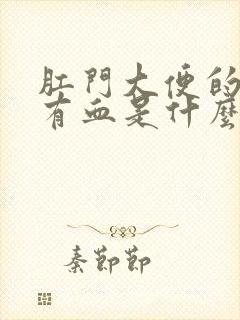 肛門大便的
有血是什麼
秦節節